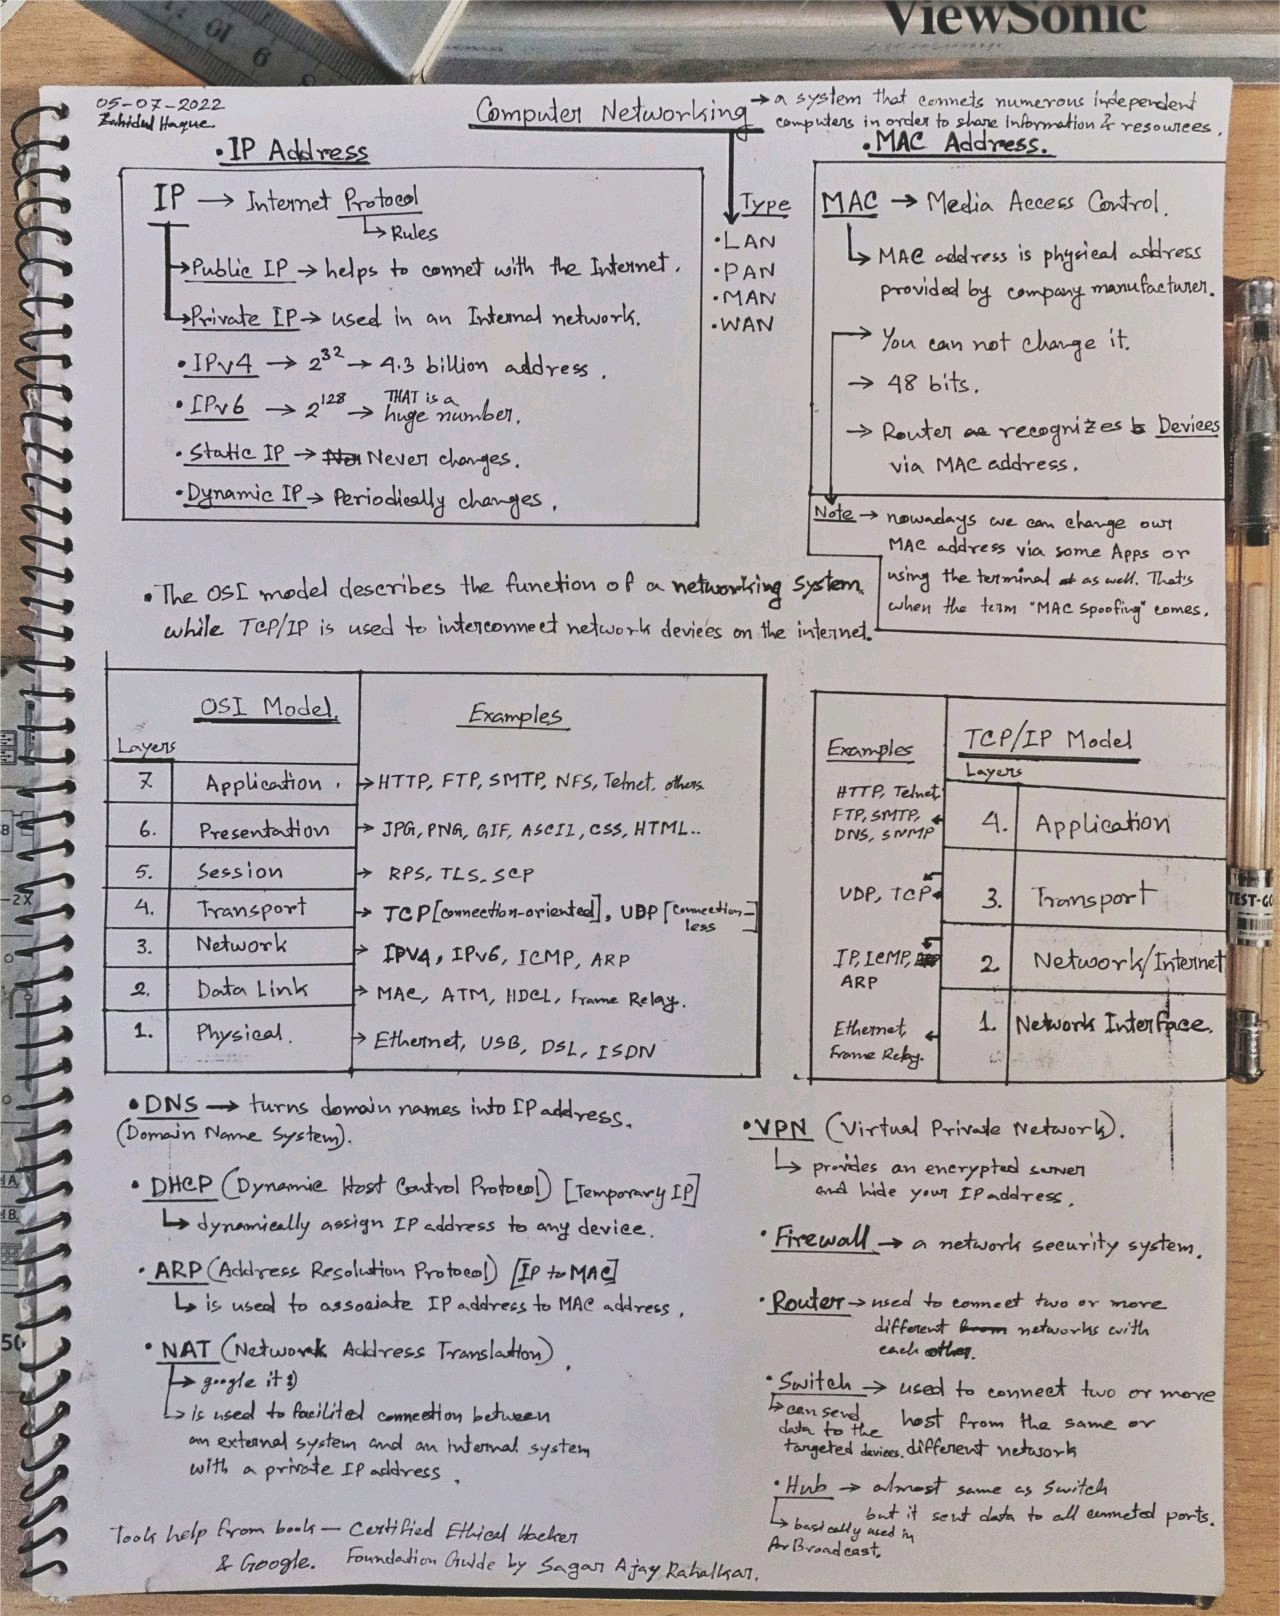 ViewSonic
05-07-2022
Zahidul Haque
Computer Networking → a system that connets numerous independent
computers in order to share information & resources.
• IP Address
IP → Internet Protocol
↳ Rules
→ Public IP → helps to connet with the Internet.
→ Private IP → used in an Internal network.
• IPv4 → 2^32 → 4.3 billion address.
• IPv6 → 2^128 → THAT is a
huge number.
• Static IP → Never changes.
• Dynamic IP → Periodically changes.
Type
• LAN
• PAN
• MAN
• WAN
• MAC Address.
MAC → Media Access Control.
↳ MAC address is physical address
provided by company manufacturer.
→ You can not change it.
→ 48 bits.
→ Router recognizes Devices
via MAC address.
Note → nowadays we can change our
MAC address via some Apps or
using the terminal as well. That's
when the term "MAC spoofing" comes.
• The OSI model describes the function of a networking system.
while TCP/IP is used to interconnect network devices on the internet.
OSI Model. Examples
Layers
7 Application. → HTTP, FTP, SMTP, NFS, Telnet, others.
6. Presentation → JPG, PNG, GIF, ASCII, CSS, HTML..
5. Session → RPS, TLS, SCP
4. Transport → TCP [connection-oriented], UDP [connection-
less]
3. Network → IPV4, IPv6, ICMP, ARP
2. Data Link → MAC, ATM, HDCL, Frame Relay.
1. Physical. → Ethernet, USB, DSL, ISDN
Examples TCP/IP Model
Layers
HTTP, Telnet
FTP, SMTP,
DNS, SNMP
4. Application
UDP, TCP
3. Transport
IP, ICMP,
ARP
2. Network/Internet
Ethernet,
Frame Relay.
1. Network Interface.
• DNS → turns domain names into IP address.
(Domain Name System).
• DHCP (Dynamic Host Control Protocol) [Temporary IP]
↳ dynamically assign IP address to any device.
• ARP (Address Resolution Protocol) [IP to MAC]
↳ is used to associate IP address to MAC address.
• NAT (Network Address Translation).
→ google it :)
↳ is used to facilited connection between
an external system and an internal system
with a private IP address.
• VPN (Virtual Private Network).
↳ provides an encrypted server
and hide your IP address.
• Firewall → a network security system.
• Router → used to connect two or more
different networks with
each other.
• Switch → used to connect two or more
host from the same or
different network
↳ can send
data to the
targeted devices.
• Hub → almost same as Switch
but it sent data to all conneted ports.
↳ basically used in
for Broadcast.
Took help from book — Certified Ethical Hacker
& Google. Foundation Guide by Sagar Ajay Rahalkar.